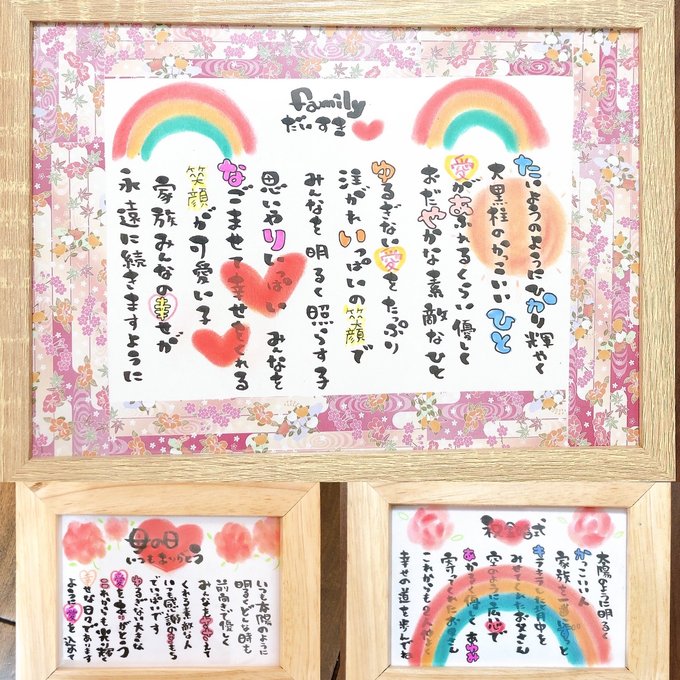 family
だいすき
たいようのようにひかり輝やく
大黒柱のかっこいいひと
愛があふれるくらい優しく
おだやかな素敵なひと
ゆるぎない愛をたっぷり
注がれいっぱいの笑顔で
みんなを明るく照らす子
思いやりいっぱいみんなを
なごませて幸せをくれる
笑顔が可愛い子
家族みんなの幸せが
永遠に続きますように
母の日
いつもありがとう
いつも太陽のように
明るくどんな時も
前向きで優しく
みんなをささえて
くれる素敵な人
いつも感謝の気もち
でいっぱいです
ゆるぎない大きな
愛をありがとう
これからも光り輝く
幸せな日々であります
ように愛を込めて
太陽のように明るく
かっこいい人
家族を一番にずっと
キラキラした背中を
みせてくれたお父さん
空ように広い心で
あかるく優しくあゆみ
寄ってくれたお母さん
幸せの道を歩んでね